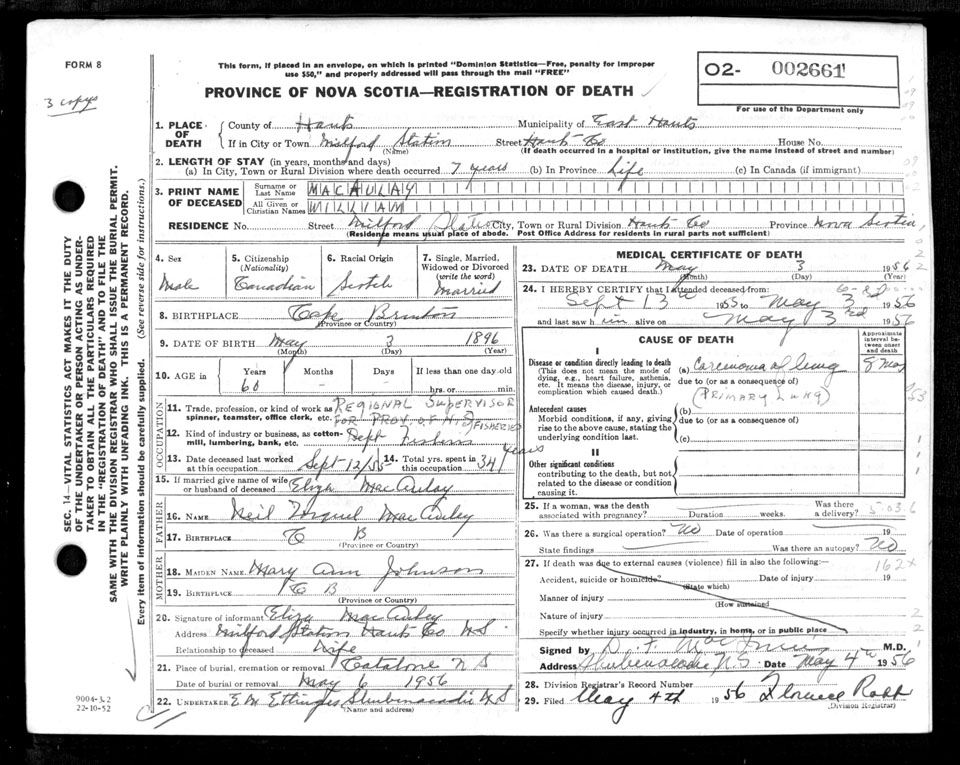 FORM 8
This form, if placed in an envelope, on which is printed "Dominion Statistics—Free, penalty for improper
use $50," and properly addressed will pass through the mail "FREE"
O2- 002661
For use of the Department only
3 copys
PROVINCE OF NOVA SCOTIA—REGISTRATION OF DEATH
1. PLACE OF DEATH
County of Hants Municipality of East Hants
If in City or Town Milford Station Street Hants Co House No.
(Name) (If death occurred in a hospital or institution, give the name instead of street and number)
2. LENGTH OF STAY (in years, months and days)
(a) In City, Town or Rural Division where death occurred 7 years (b) In Province Life (c) In Canada (if immigrant)
3. PRINT NAME OF DECEASED
Surname or Last Name MACAULAY
All Given or Christian Names WILLIAM
RESIDENCE No. Street Milford Station City, Town or Rural Division Hants Co Province Nova Scotia
(Residence means usual place of abode. Post Office Address for residents in rural parts not sufficient)
4. Sex
Male
5. Citizenship
(Nationality)
Canadian
6. Racial Origin
Scotch
7. Single, Married,
Widowed or Divorced
(write the word)
Married
8. BIRTHPLACE Cape Breton
(Province or Country)
9. DATE OF BIRTH May 3 1896
(Month) (Day) (Year)
10. AGE in
Years Months Days If less than one day old
60 - - hrs. or min.
OCCUPATION
11. Trade, profession, or kind of work as REGIONAL SUPERVISOR
spinner, teamster, office clerk, etc. FOR PROV. OF N.S. (FISHERIES
12. Kind of industry or business, as cotton-
mill, lumbering, bank, etc. Dept Fisheries
13. Date deceased last worked
at this occupation Sept 12/55
14. Total yrs. spent in
this occupation 34 years
15. If married give name of wife
or husband of deceased Eliza MacAulay
FATHER
16. NAME Neil MacAuley
17. BIRTHPLACE C B
(Province or Country)
MOTHER
18. MAIDEN NAME Mary Ann Johnson
19. BIRTHPLACE C B
(Province or Country)
20. Signature of informant Eliza MacAuley
Address Milford Station Hants Co. N.S.
Relationship to deceased Wife
21. Place of burial, cremation or removal Catalone N S
Date of burial or removal May 6 1956
22. UNDERTAKER E M Ettinger Shubenacadie N S
(Name and address)
MEDICAL CERTIFICATE OF DEATH
23. DATE OF DEATH May 3 1956
(Month) (Day) (Year)
24. I HEREBY CERTIFY that I attended deceased from:
Sept 13th 1955 to May 3 1956
and last saw him alive on May 3rd 1956
CAUSE OF DEATH
Approximate
interval be-
tween onset
and death
I
Disease or condition directly leading to death
(This does not mean the mode of
dying, e.g., heart failure, asthenia,
etc. It means the disease, injury, or
complication which caused death.)
(a) Carcinoma of lung 8 mos
due to (or as a consequence of)
(PRIMARY LUNG)
Antecedent causes
Morbid conditions, if any, giving
rise to the above cause, stating the
underlying condition last.
(b)
due to (or as a consequence of)
(c)
II
Other significant conditions
contributing to the death, but not
related to the disease or condition
causing it.
25. If a woman, was the death
associated with pregnancy? Duration weeks. Was there
a delivery?
26. Was there a surgical operation? No Date of operation 19
State findings Was there an autopsy? No
27. If death was due to external causes (violence) fill in also the following:—
162x
Accident, suicide or homicide? Date of injury 19
(State which)
Manner of injury
(How sustained)
Nature of injury
Specify whether injury occurred in industry, in home, or in public place
Signed by D. F. MacInnis M.D.
Address Shubenacadie N.S. Date May 4th 1956
28. Division Registrar's Record Number
29. Filed May 4th 1956 Florence Robb
(Division Registrar)
SEC. 14—VITAL STATISTICS ACT MAKES IT THE DUTY
OF THE UNDERTAKER OR PERSON ACTING AS UNDER-
TAKER TO OBTAIN ALL THE PARTICULARS REQUIRED
IN THE "REGISTRATION OF DEATH" AND TO FILE THE
SAME WITH THE DIVISION REGISTRAR WHO SHALL ISSUE THE BURIAL PERMIT.
WRITE PLAINLY WITH UNFADING INK. THIS IS A PERMANENT RECORD.
Every item of information should be carefully supplied. (See reverse side for instructions.)
9004-3.2
22-10-52